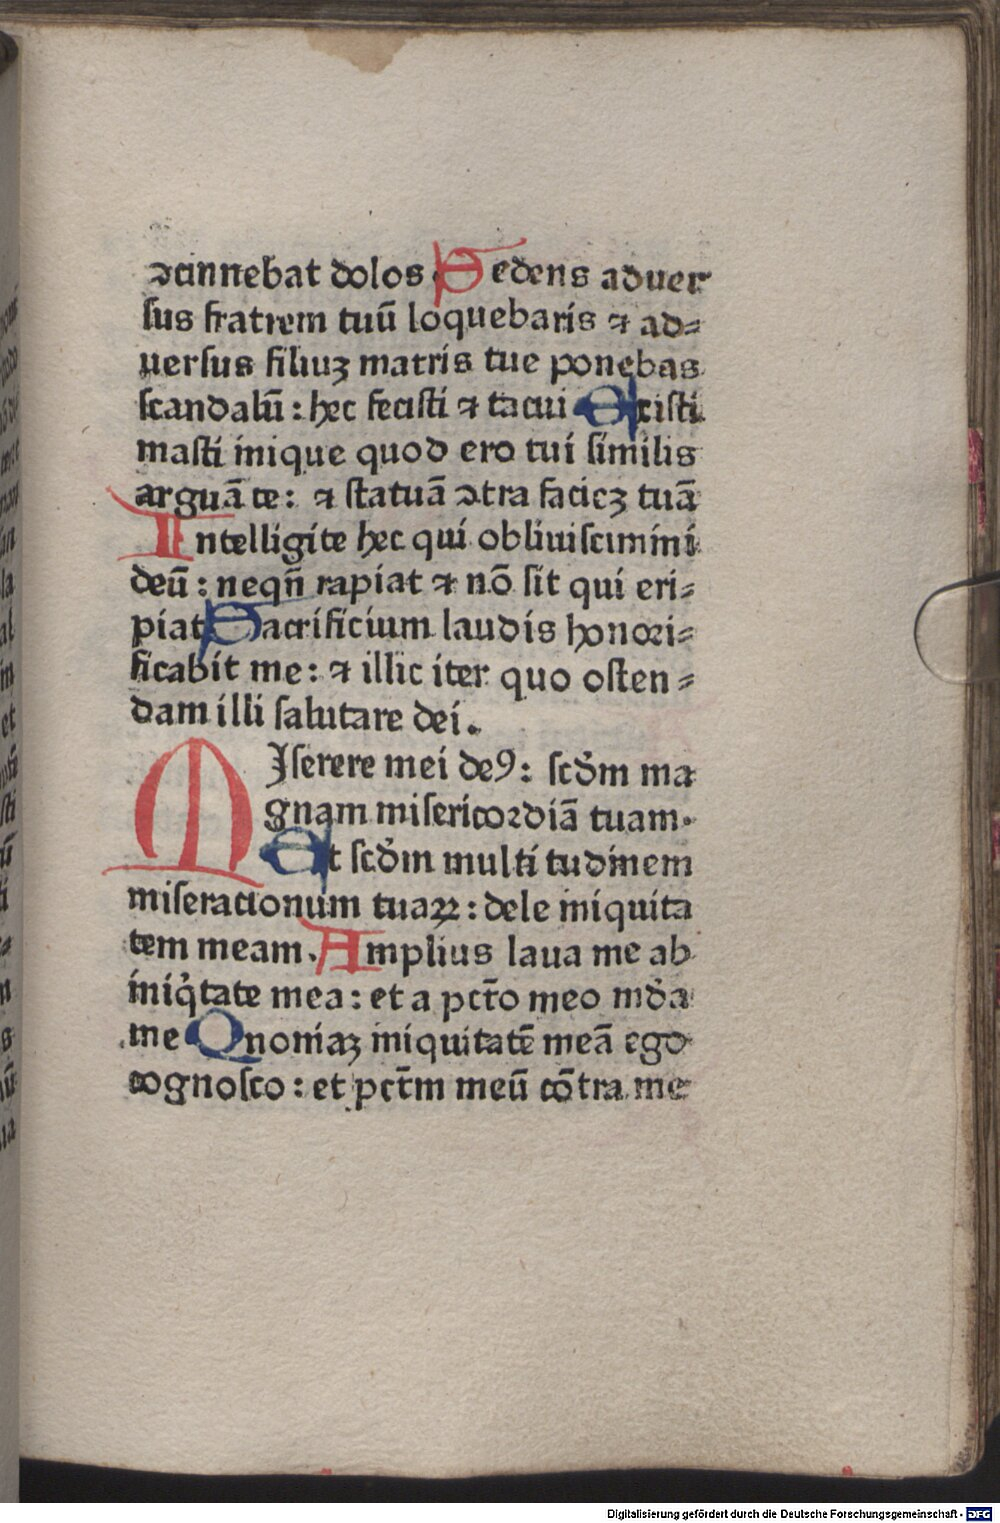 ↄcinnebat dolos Sedens aduer
ſus fratrem tuū loquebaris ⁊ ad⸗
uerſus filiuꝫ matris tue ponebas
ſcandalū: hec feciſti ⁊ tacui Exiſti
maſti inique quod ero tui ſimilis
arguā te: ⁊ ſtatuā ↄtra facieꝫ tuā
Intelligite hec qui obliuiſcimini
deū: neqn̄ rapiat ⁊ nō ſit qui eri⸗
piat Sacrificium laudis honori⸗
ficabit me: ⁊ illic iter quo oſten⸗
dam illi ſalutare dei.
MIſerere mei deꝰ: ſcd̓m ma
gnam miſericoꝛdiā tuam.
Et ſcd̓m multi tudinem
miſerationum tuaꝝ: dele iniquita
tem meam. Amplius laua me ab
iniq̇tate mea: et a pct̄o meo mūda
me Qnoniaꝫ iniquitatē meā ego
cognoſco: et pct̄m meū cōtra me
Digitalisierung gefördert durch die Deutsche Forschungsgemeinschaft - DFG